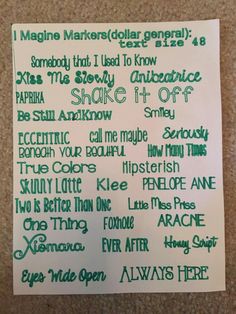 I Magine Markers(dollar general):
text size 48
Somebody that I Used To Know
Kiss Me Slowly Anibeatrice
PAPRIKA Shake it Off
Be Still And Know Smiley
ECCENTRIC call me maybe Seriously
Beneath Your Beautiful How Many Times
True Colors Hipsterish
SKINNY LATTE Klee PENELOPE ANNE
Two Is Better Than One Little Miss Priss
One Thing Foxhole ARACNE
Xiomara EVER AFTER Honey Script
Eyes Wide Open ALWAYS HERE